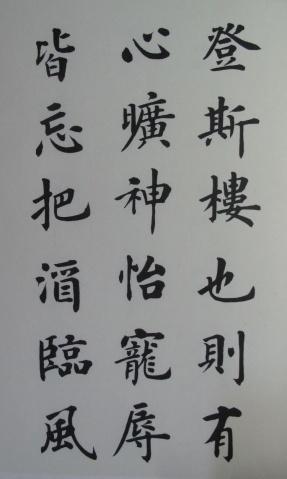 登斯樓也則有
心曠神怡寵辱
皆忘把酒臨風